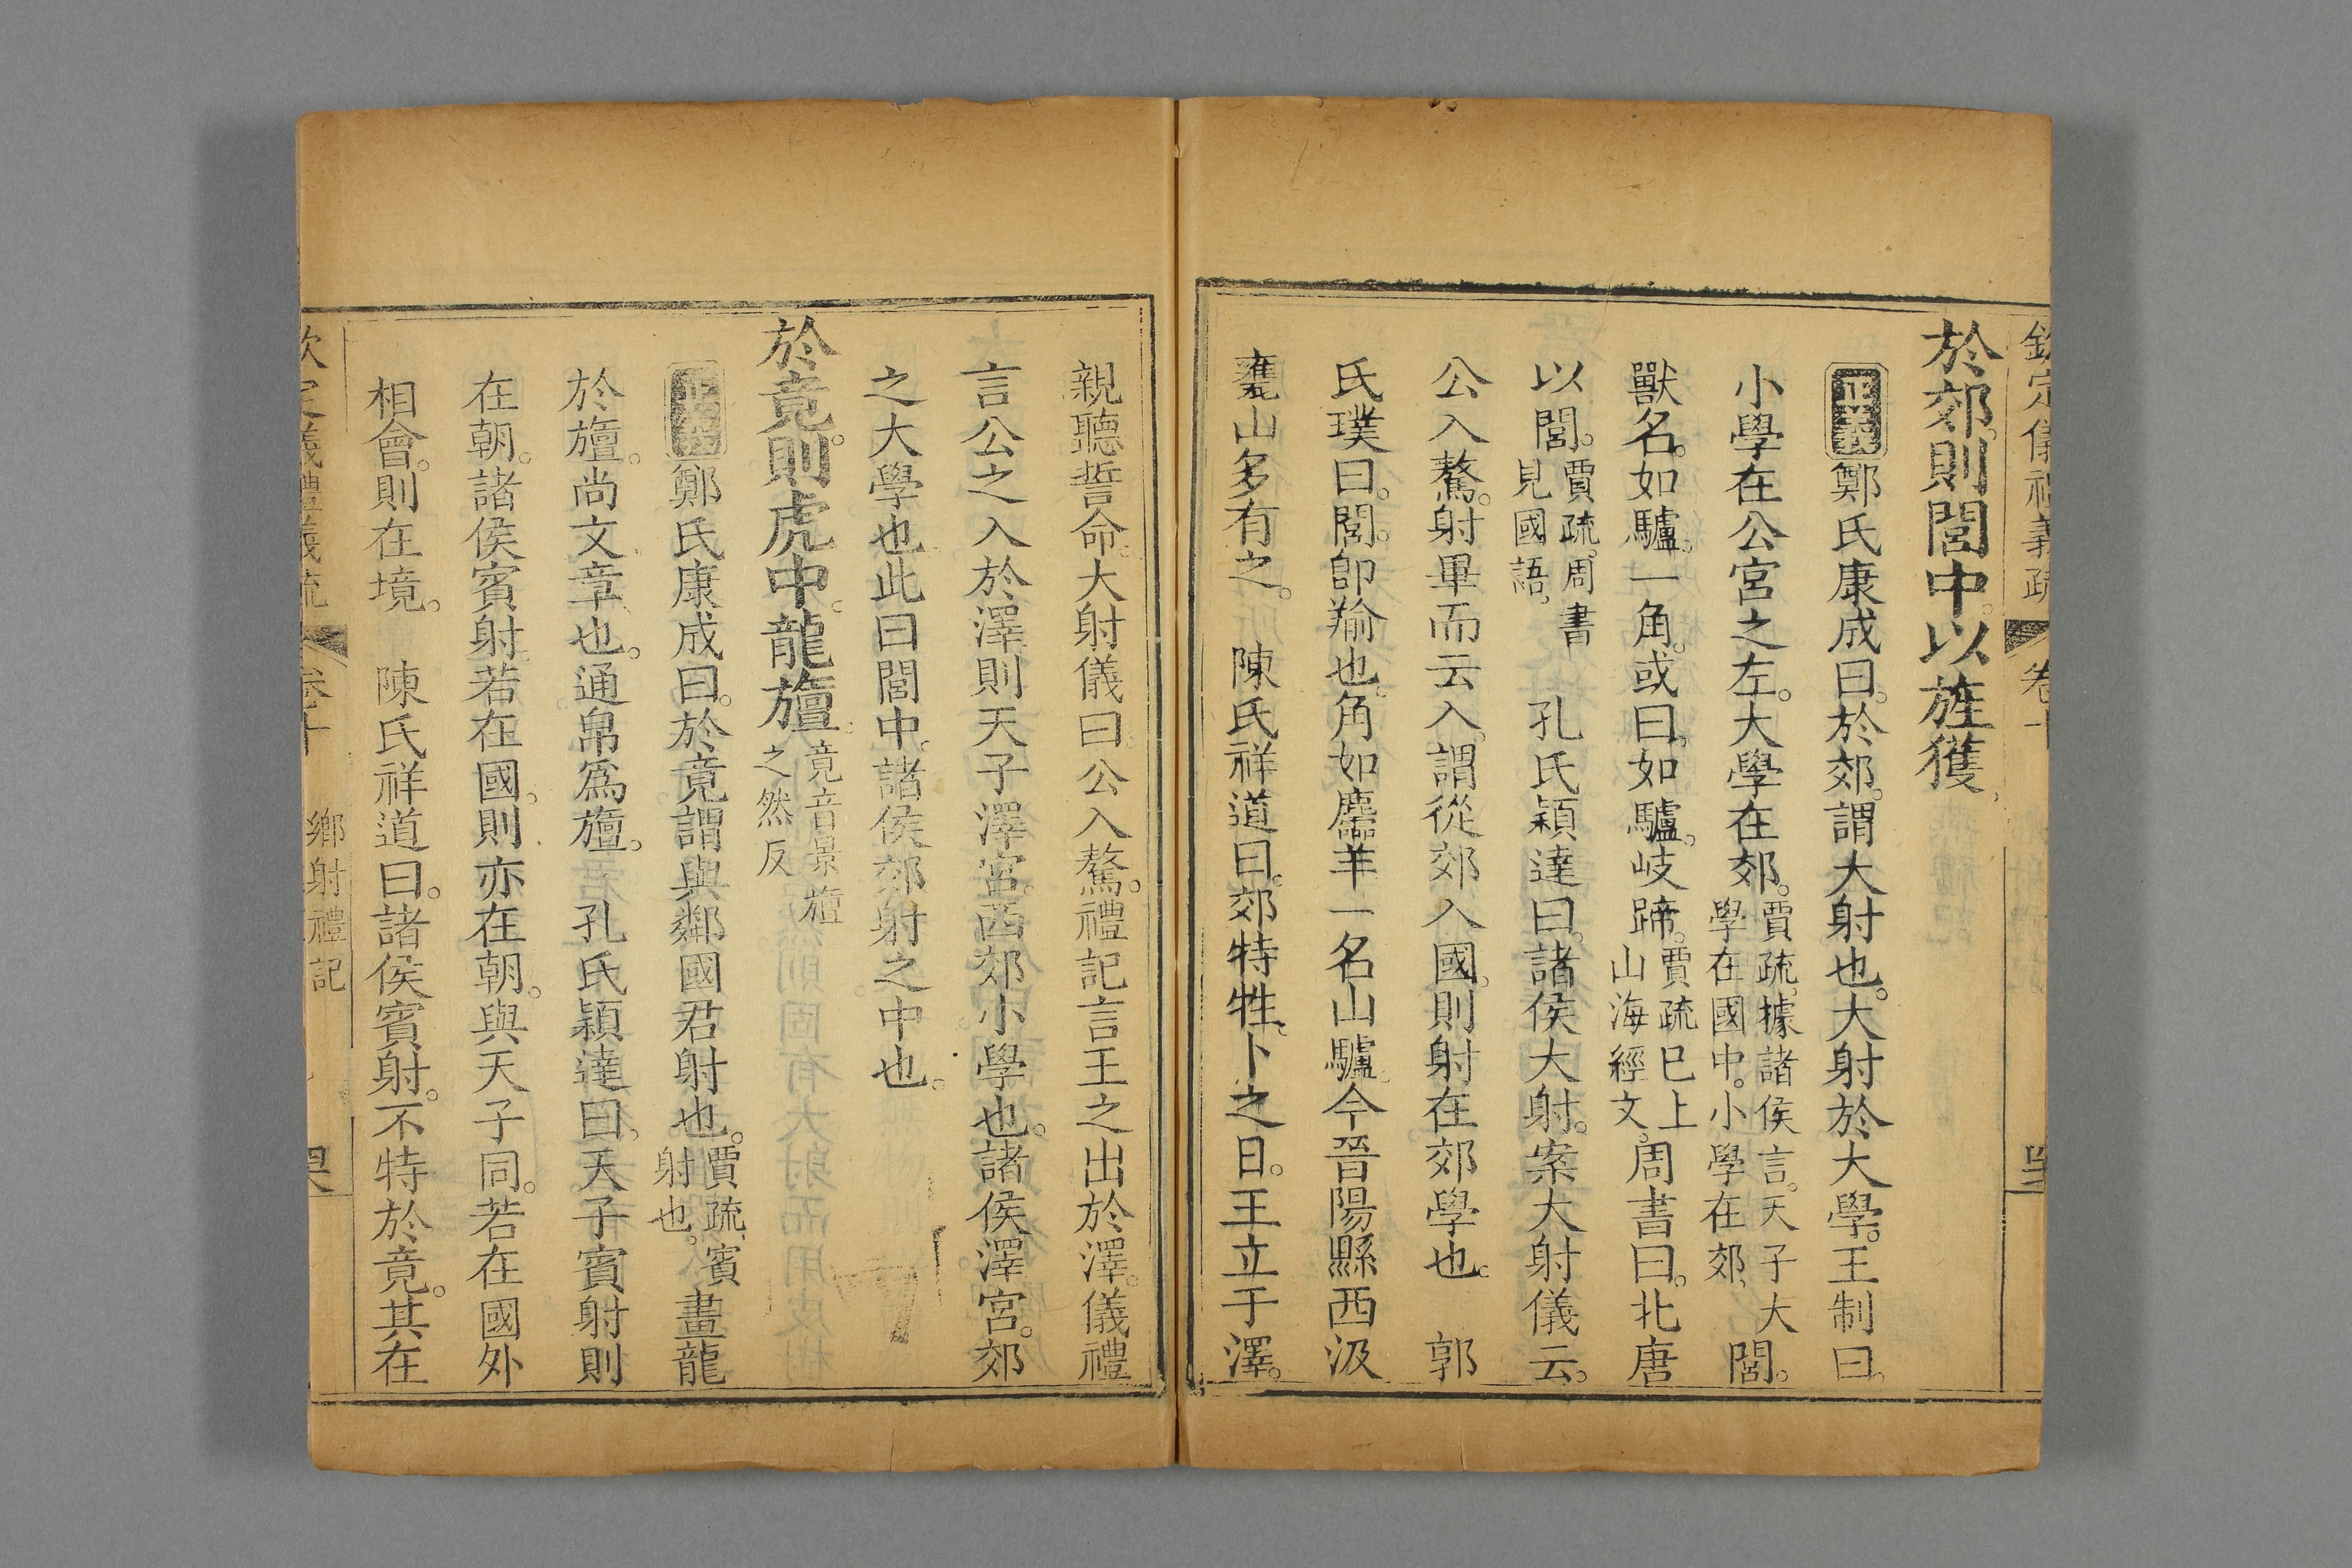 於郊。則閭中。以旌獲。
正義鄭氏康成曰。於郊。謂大射也。大射於大學。王制曰。
小學在公宮之左。大學在郊。賈疏據諸侯言。天子大學在國中。小學在郊。閭。
獸名。如驢。一角。或曰。如驢。岐蹄。賈疏已上山海經文。周書曰。北唐
以閭。賈疏。周書見國語。 孔氏穎達曰。諸侯大射。案大射儀云。
公入驁。射畢而云入。謂從郊入國。則射在郊學也。 郭
氏璞曰。閭。卽羭也。角如麢羊。一名山驢。今晉陽縣西汲
甕山多有之。 陳氏祥道曰。郊特牲。卜之日。王立于澤。
親聽誓命。大射儀曰。公入驁。禮記言王之出於澤。儀禮
言公之入於澤。則天子澤宮。西郊小學也。諸侯澤宮。郊
之大學也。此曰閭中。諸侯郊射之中也。
於竟。則虎中。龍旜。竟音景旜之然反
正義鄭氏康成曰。於竟。謂與鄰國君射也。賈疏。賓射也。畫龍
於旜。尚文章也。通帛爲旜。 孔氏穎達曰。天子賓射則
在朝。諸侯賓射。若在國。則亦在朝。與天子同。若在國外
相會。則在境。 陳氏祥道曰。諸侯賓射。不特於竟。其在
鄉射禮記